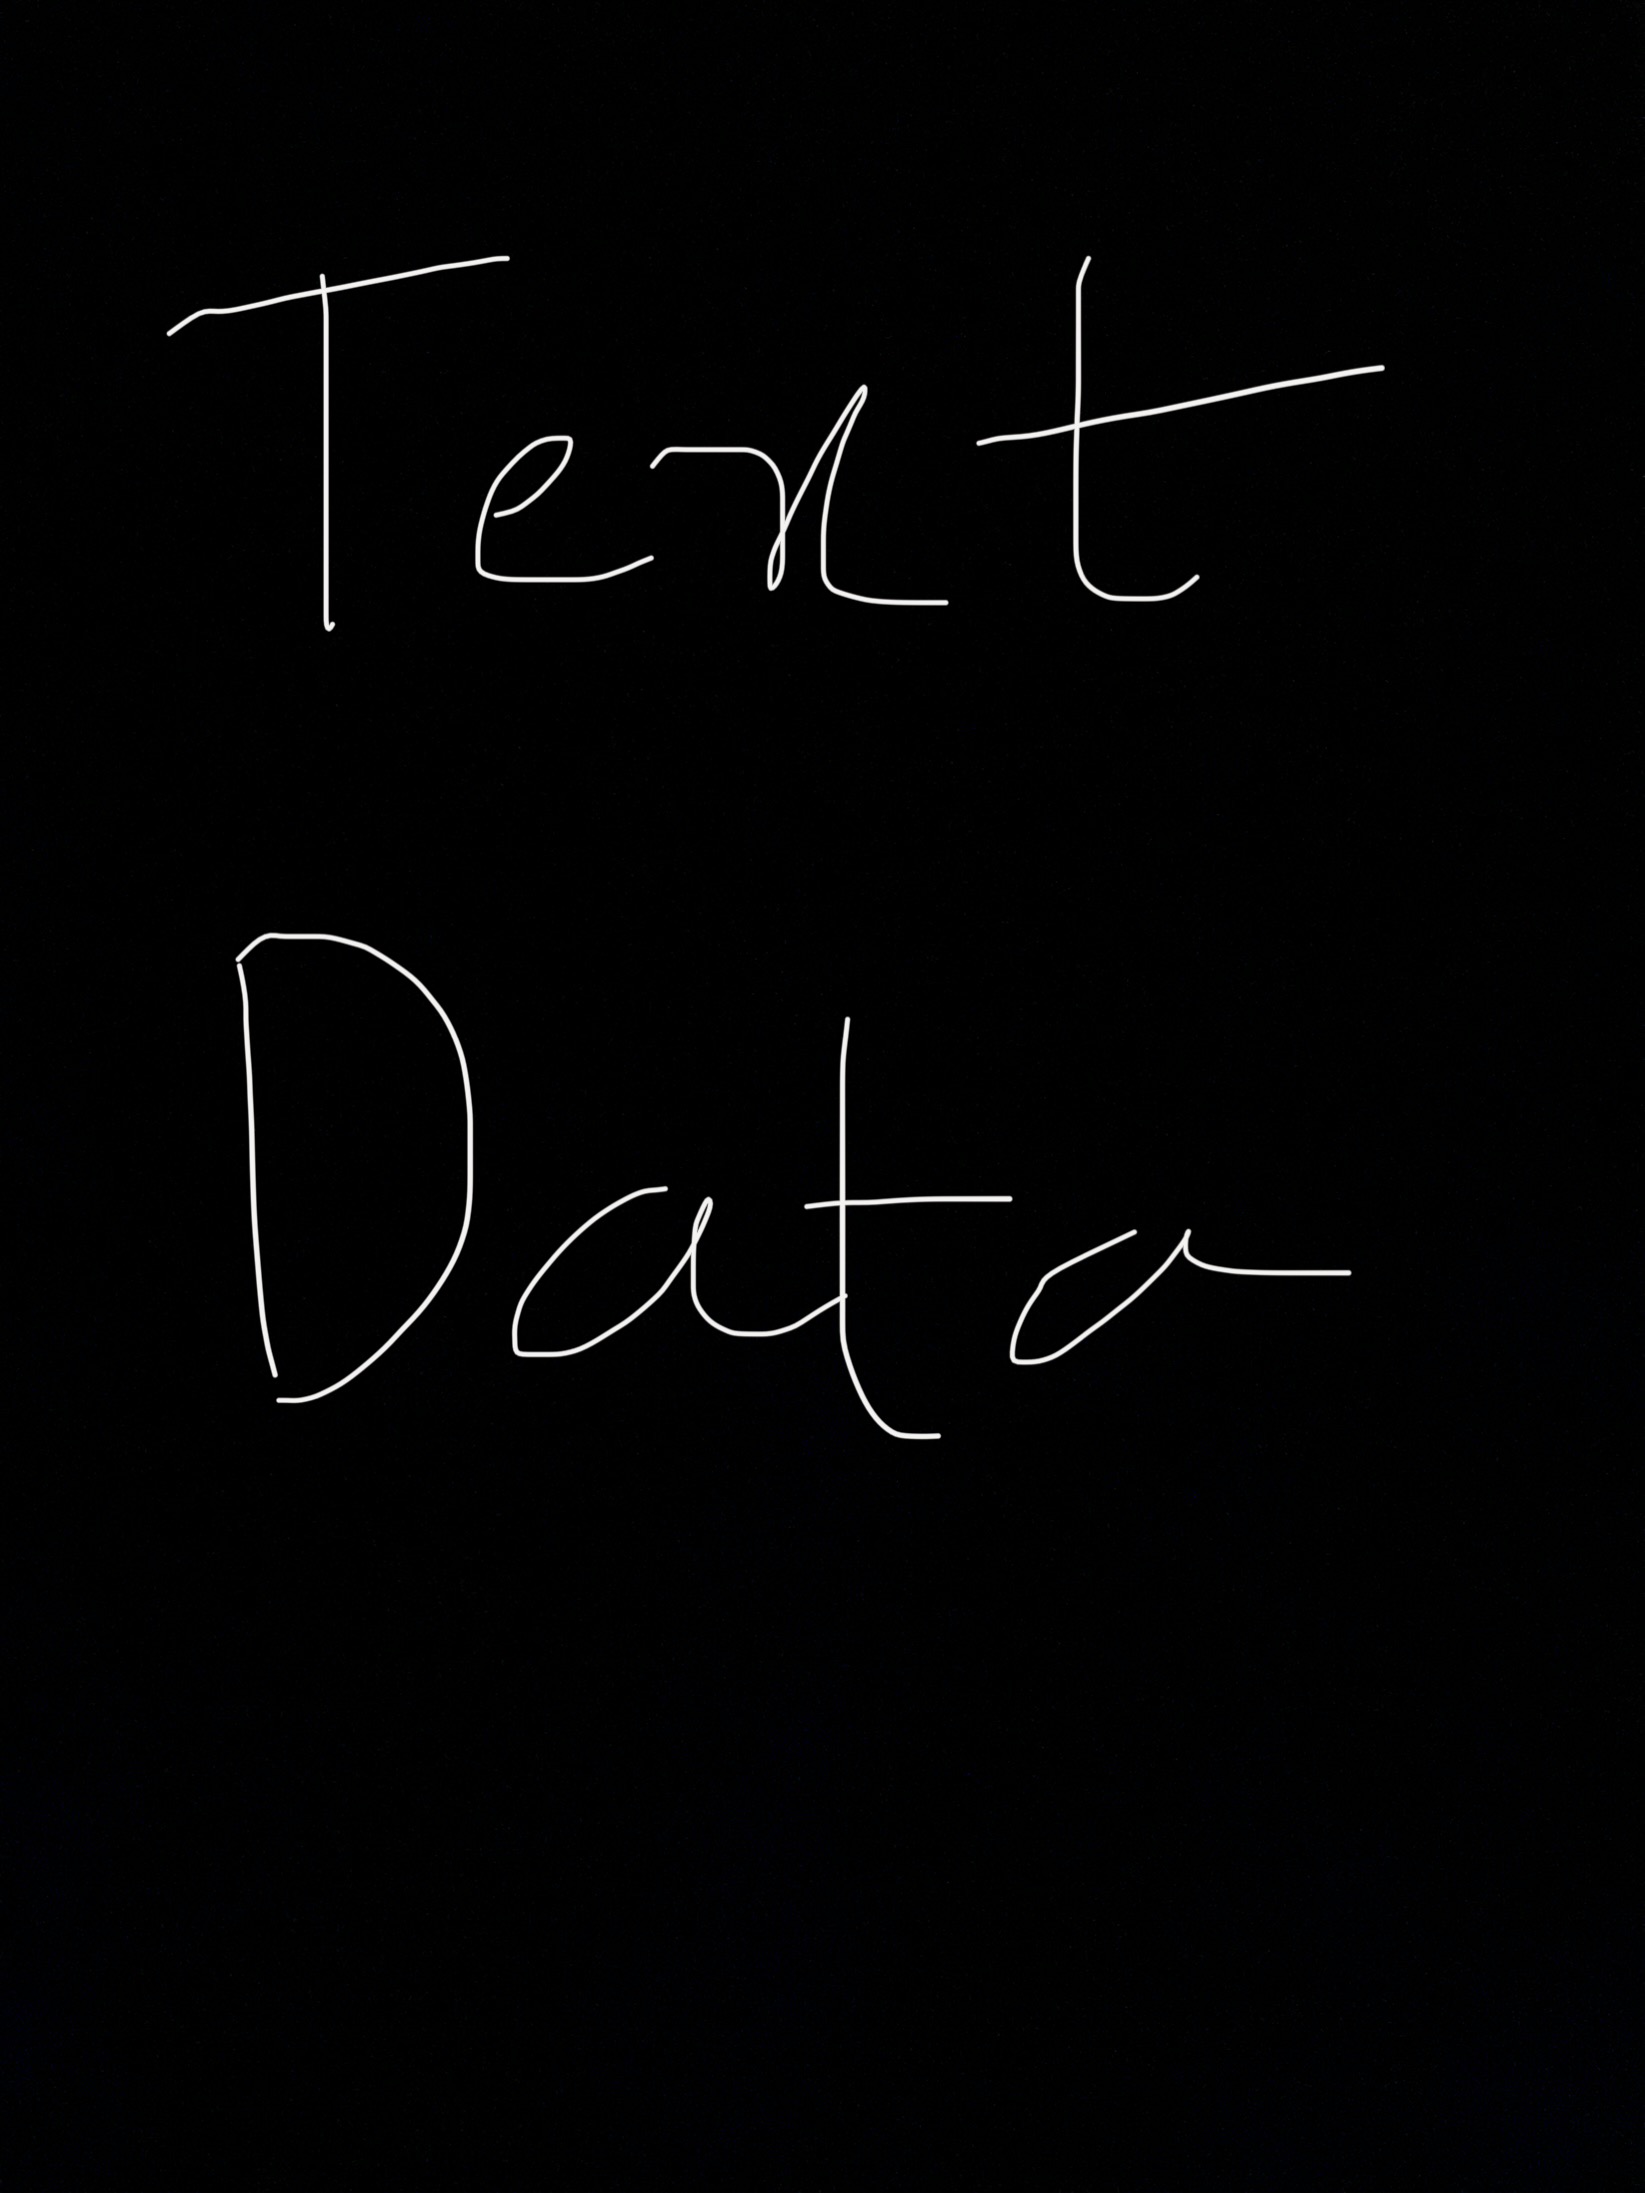 Text
Data